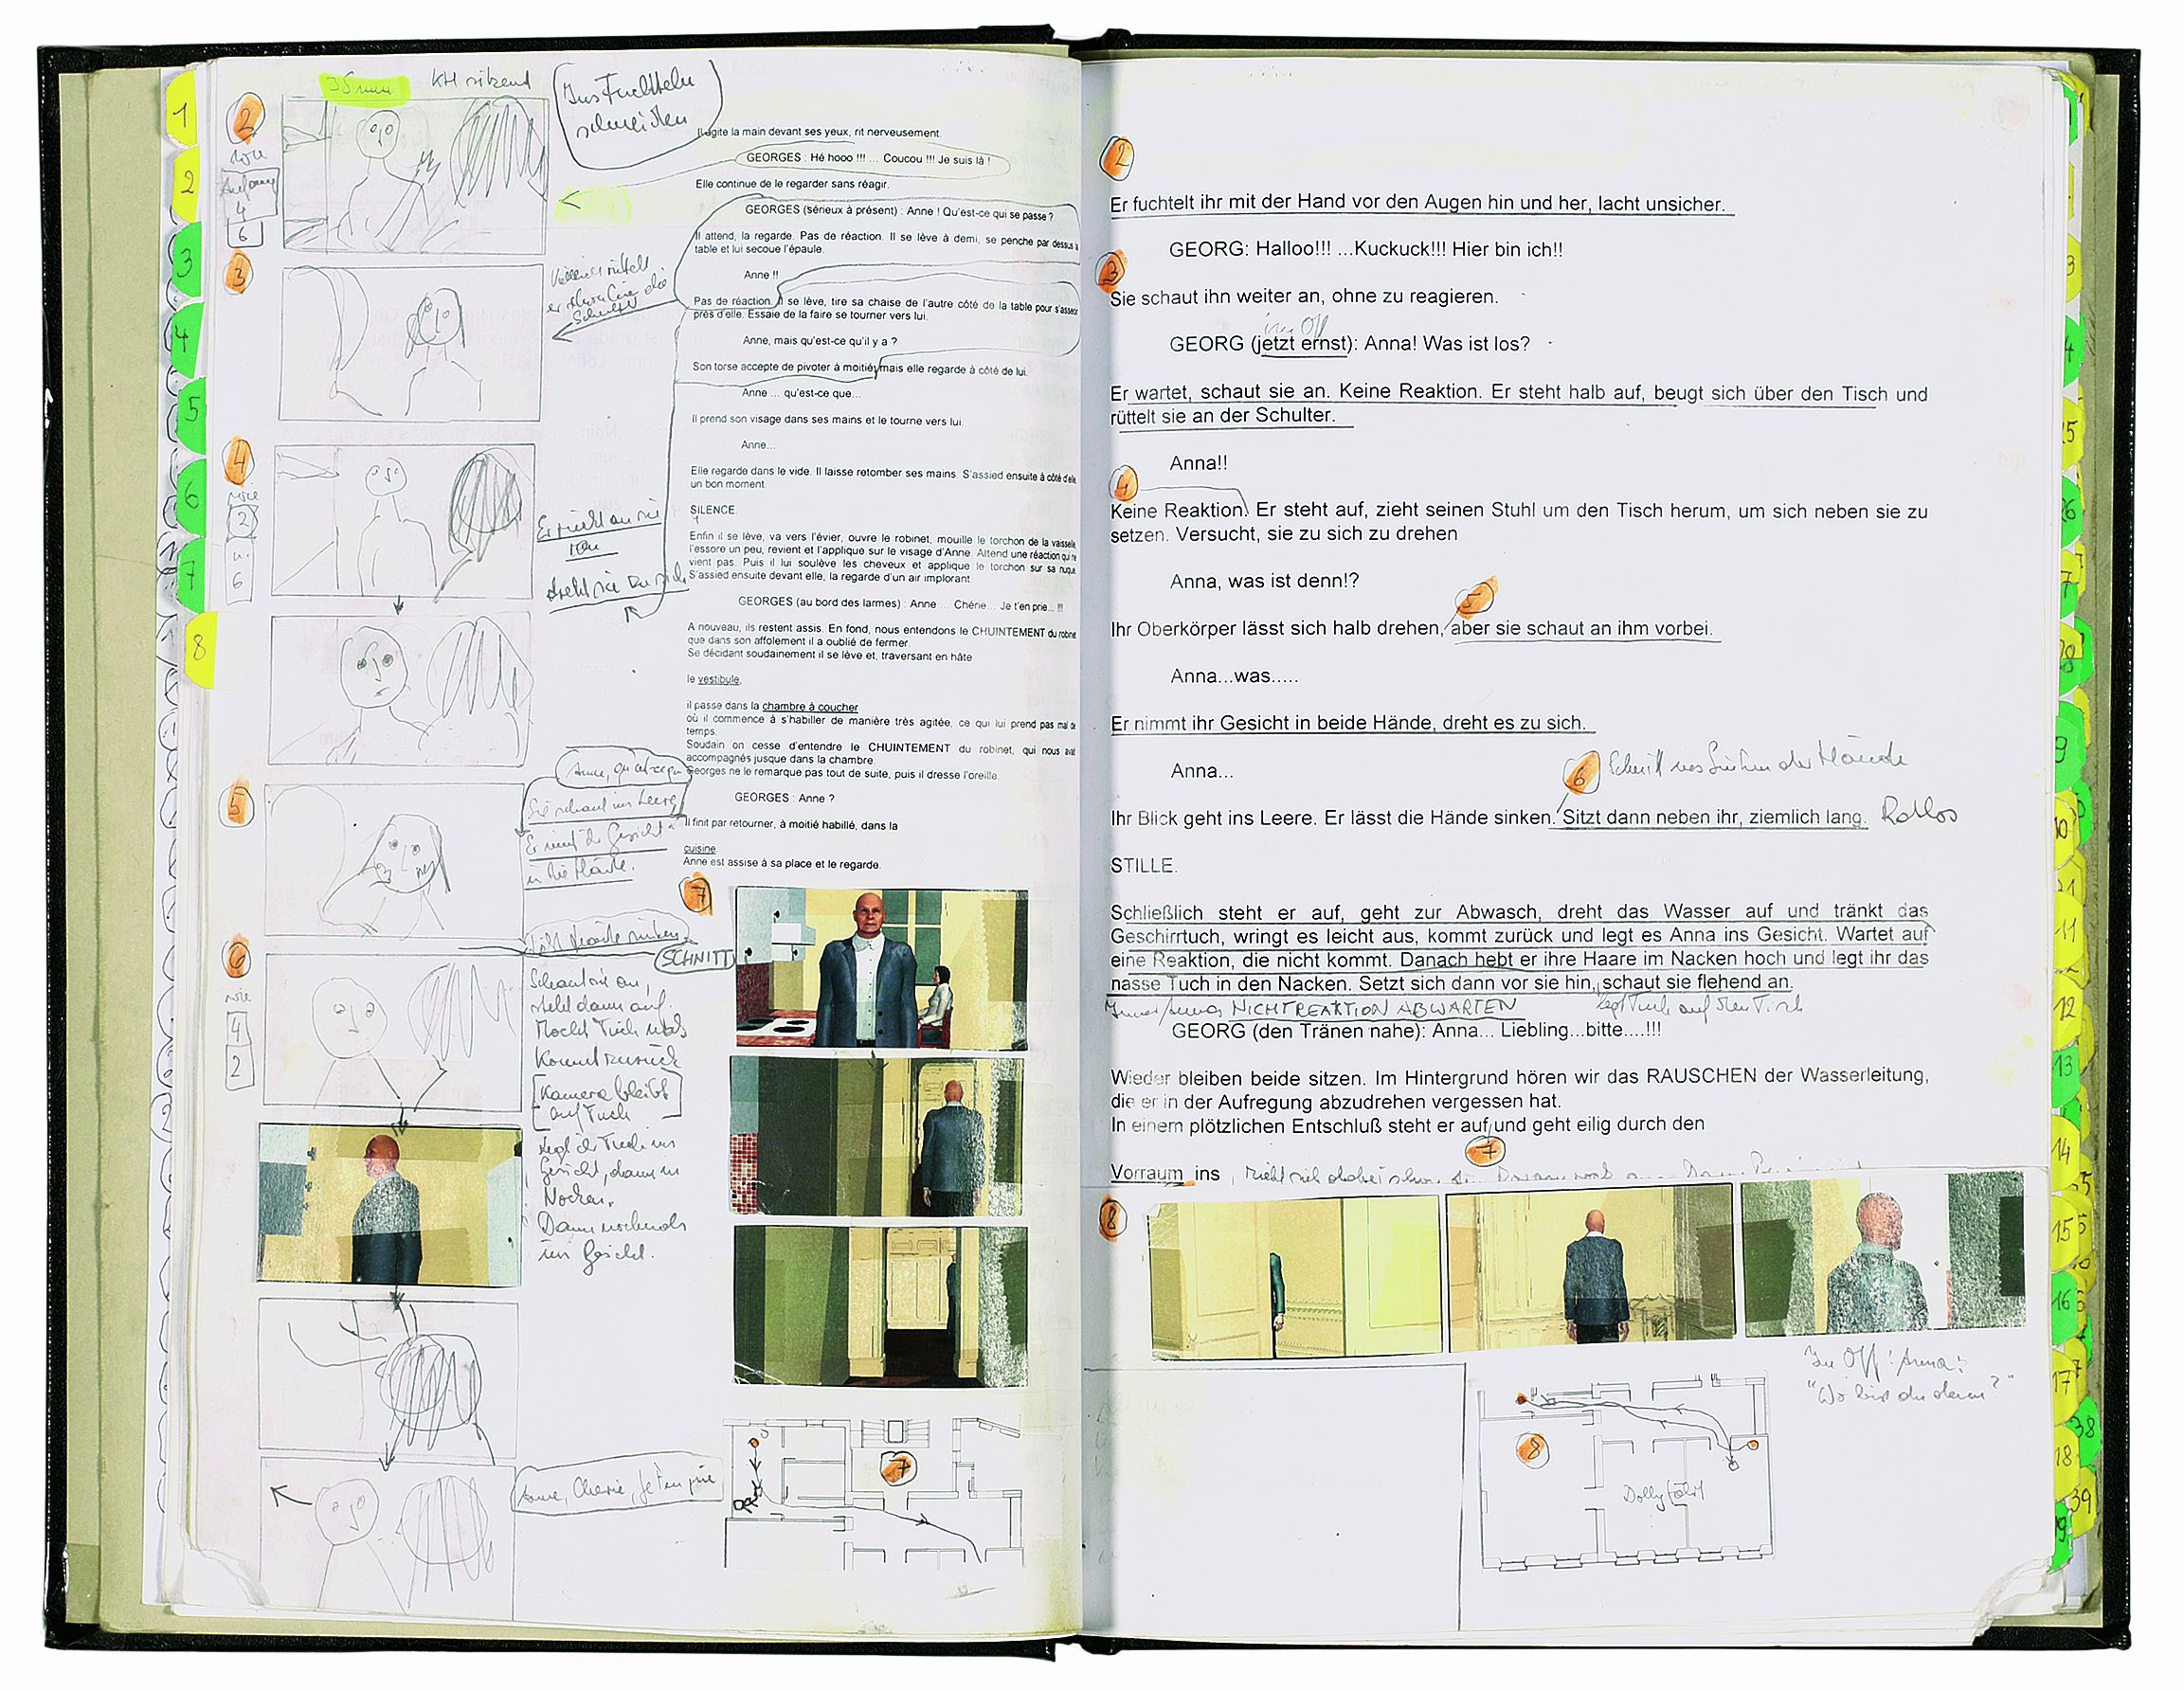 1
2
3
4
5
6
7
8
2
35mm
KH sitzend
Ins Fuchteln
schneiden
wie
Anfang
4
6
3
Vielleicht rüttelt
er schon hier die
Schulter
4
wie
2
u.
6
Er rückt an sie
ran
dreht sie zu sich
5
Anne, qu'est-ce que
Sie schaut ins Leere
Er nimmt ihr Gesicht
in die Hände.
lässt Hände sinken
SCHNITT
6
wie
4
2
Schaut sie an,
steht dann auf.
Macht Tuch nass
Kommt zurück
Kamera bleibt
auf Tuch
legt ihr Tuch ins
Gesicht, dann in
Nacken.
Dann nochmals
ins Gesicht.
Anne, Chérie, je t'en prie
Il agite la main devant ses yeux, rit nerveusement.
GEORGES : Hé hooo !!! ... Coucou !!! Je suis là !
Elle continue de le regarder sans réagir.
GEORGES (sérieux à présent) : Anne ! Qu'est-ce qui se passe ?
Il attend, la regarde. Pas de réaction. Il se lève à demi, se penche par dessus la
table et lui secoue l'épaule.
Anne !!
Pas de réaction. Il se lève, tire sa chaise de l'autre côté de la table pour s'asseoir
près d'elle. Essaie de la faire se tourner vers lui.
Anne, mais qu'est-ce qu'il y a ?
Son torse accepte de pivoter à moitié, mais elle regarde à côté de lui.
Anne ... qu'est-ce que...
Il prend son visage dans ses mains et le tourne vers lui.
Anne...
Elle regarde dans le vide. Il laisse retomber ses mains. S'assied ensuite à côté d'elle
un bon moment.
SILENCE.
Enfin il se lève, va vers l'évier, ouvre le robinet, mouille le torchon de la vaisselle,
l'essore un peu, revient et l'applique sur le visage d'Anne. Attend une réaction qui ne
vient pas. Puis il lui soulève les cheveux et applique le torchon sur sa nuque.
S'assied ensuite devant elle, la regarde d'un air implorant.
GEORGES (au bord des larmes) : Anne ... Chérie... Je t'en prie... !!!
A nouveau, ils restent assis. En fond, nous entendons le CHUINTEMENT du robinet
que dans son affolement il a oublié de fermer.
Se décidant soudainement il se lève et, traversant en hâte
le vestibule,
il passe dans la chambre à coucher
où il commence à s'habiller de manière très agitée, ce qui lui prend pas mal de
temps.
Soudain on cesse d'entendre le CHUINTEMENT du robinet, qui nous avait
accompagnés jusque dans la chambre.
Georges ne le remarque pas tout de suite, puis il dresse l'oreille.
GEORGES : Anne ?
Il finit par retourner, à moitié habillé, dans la
cuisine
Anne est assise à sa place et le regarde.
7
7
2
Er fuchtelt ihr mit der Hand vor den Augen hin und her, lacht unsicher.
GEORG: Halloo!!! ...Kuckuck!!! Hier bin ich!!
3
Sie schaut ihn weiter an, ohne zu reagieren.
im Off
GEORG (jetzt ernst): Anna! Was ist los?
Er wartet, schaut sie an. Keine Reaktion. Er steht halb auf, beugt sich über den Tisch und
rüttelt sie an der Schulter.
Anna!!
4
Keine Reaktion. Er steht auf, zieht seinen Stuhl um den Tisch herum, um sich neben sie zu
setzen. Versucht, sie zu sich zu drehen
Anna, was ist denn!?
5
Ihr Oberkörper lässt sich halb drehen, aber sie schaut an ihm vorbei.
Anna...was.....
Er nimmt ihr Gesicht in beide Hände, dreht es zu sich.
Anna...
6 Schnitt ins Sinken der Hände
Ihr Blick geht ins Leere. Er lässt die Hände sinken. Sitzt dann neben ihr, ziemlich lang. Ratlos
STILLE.
Schließlich steht er auf, geht zur Abwasch, dreht das Wasser auf und tränkt das
Geschirrtuch, wringt es leicht aus, kommt zurück und legt es Anna ins Gesicht. Wartet auf
eine Reaktion, die nicht kommt. Danach hebt er ihre Haare im Nacken hoch und legt ihr das
nasse Tuch in den Nacken. Setzt sich dann vor sie hin, schaut sie flehend an.
Immer Annas NICHTREAKTION ABWARTEN legt Tuch auf den Tisch
GEORG (den Tränen nahe): Anna... Liebling...bitte....!!!
Wieder bleiben beide sitzen. Im Hintergrund hören wir das RAUSCHEN der Wasserleitung,
die er in der Aufregung abzudrehen vergessen hat.
In einem plötzlichen Entschluß steht er auf und geht eilig durch den
7
Vorraum ins
8
Im Off: Anna:
"Wo bist du denn?"
8
Dollyfahrt
9
10
11
12
13
14
15
16
17
38
18
39